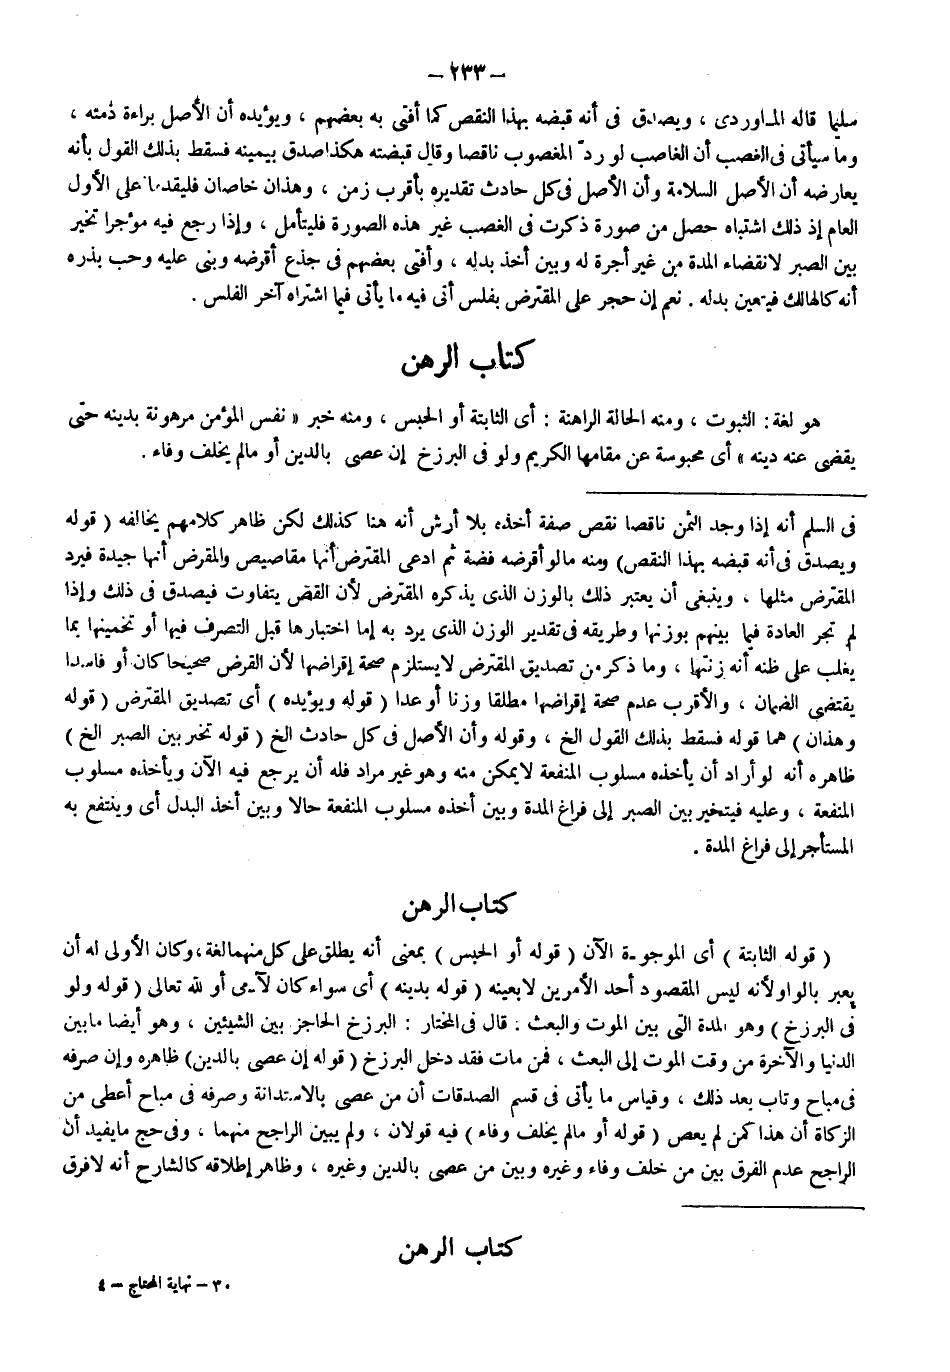 – ٢٣٣ –
سليما قاله الماوردى ، ويصدق فى أنه قبضه بهذا النقص كما أفتى به بعضهم ، ويؤيده أن الأصل براءة ذمته ،
وما سيأتى فى الغصب أن الغاصب لو ردّ المغصوب ناقصا وقال قبضته هكذا صدق بيمينه فسقط بذلك القول بأنه
يعارضه أن الأصل السلامة وأن الأصل فى كل حادث تقديره بأقرب زمن ، وهذان خاصان فليقدما على الأول
العام إذ ذلك اشتباه حصل من صورة ذكرت فى الغصب غير هذه الصورة فليتأمل ، وإذا رجع فيه مؤجرا تخير
بين الصبر لانقضاء المدة من غير أجرة له وبين أخذ بدله ، وأفتى بعضهم فى جذع أقرضه وبنى عليه وحب بذره
أنه كالهالك فيتعين بدله . نعم إن حجر على المقترض بفلس أتى فيه ما يأتى فيما اشتراه آخر الفلس .
كتاب الرهن
هو لغة : الثبوت ، ومنه الحالة الراهنة : أى الثابتة أو الحبس ، ومنه خبر « نفس المؤمن مرهونة بدينه حتى
يقضى عنه دينه » أى محبوسة عن مقامها الكريم ولو فى البرزخ إن عصى بالدين أو مالم يخلف وفاء .
فى السلم أنه إذا وجد الثمن ناقصا نقص صفة أخذه بلا أرش أنه هنا كذلك لكن ظاهر كلامهم يخالفه ( قوله
ويصدق فى أنه قبضه بهذا النقص) ومنه مالو أقرضه فضة ثم ادعى المقترض أنها مقاصيص والمقرض أنها جيدة فيرد
المقترض مثلها ، وينبغى أن يعتبر ذلك بالوزن الذى يذكره المقترض لأن القص يتفاوت فيصدق فى ذلك وإذا
لم تجر العادة فيما بينهم بوزنها وطريقه فى تقدير الوزن الذى يرد به إما اختبارها قبل التصرف فيها أو تخمينها بما
يغلب على ظنه أنه زنتها ، وما ذكر من تصديق المقترض لايستلزم صحة إقراضها لأن القرض صحيحا كان أو فاسدا
يقتضى الضمان ، والأقرب عدم صحة إقراضها مطلقا وزنا أو عدا ( قوله ويؤيده ) أى تصديق المقترض ( قوله
وهذان ) هما قوله فسقط بذلك القول الخ ، وقوله وأن الأصل فى كل حادث الخ ( قوله تخير بين الصبر الخ )
ظاهره أنه لو أراد أن يأخذه مسلوب المنفعة لايمكن منه وهو غير مراد فله أن يرجع فيه الآن ويأخذه مسلوب
المنفعة ، وعليه فيتخير بين الصبر إلى فراغ المدة وبين أخذه مسلوب المنفعة حالا وبين أخذ البدل أى وينتفع به
المستأجر إلى فراغ المدة .
كتاب الرهن
( قوله الثابتة ) أى الموجودة الآن ( قوله أو الحبس ) بمعنى أنه يطلق على كل منهما لغة ، وكان الأولى له أن
يعبر بالواو لأنه ليس المقصود أحد الأمرين لابعينه ( قوله بدينه ) أى سواء كان لآدمى أو لله تعالى ( قوله ولو
فى البرزخ ) وهو المدة التى بين الموت والبعث . قال فى المختار : البرزخ الحاجز بين الشيئين ، وهو أيضا مابين
الدنيا والآخرة من وقت الموت إلى البعث ، فمن مات فقد دخل البرزخ ( قوله إن عصى بالدين) ظاهره وإن صرفه
فى مباح وتاب بعد ذلك ، وقياس ما يأتى فى قسم الصدقات أن من عصى بالاستدانة وصرفه فى مباح أعطى من
الزكاة أن هذا كمن لم يعص ( قوله أو مالم يخلف وفاء ) فيه قولان ، ولم يبين الراجح منهما ، وفى حج مايفيد أن
الراجح عدم الفرق بين من خلف وفاء وغيره وبين من عصى بالدين وغيره ، وظاهر إطلاقه كالشارح أنه لافرق
كتاب الرهن
٣٠ – نهاية المحتاج – ٤